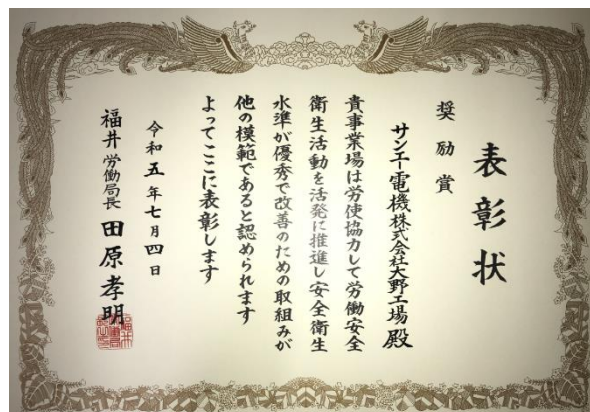 表彰状
奨励賞
サンエー電機株式会社大野工場殿
貴事業場は労使協力して労働安全
衛生活動を活発に推進し安全衛生
水準が優秀で改善のための取組みが
他の模範であると認められます
よってここに表彰します
令和五年七月四日
福井労働局長 田原孝明